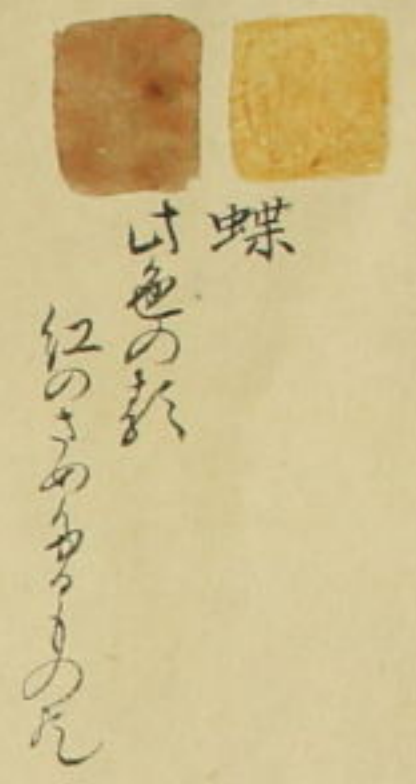 蝶
此色の類
紅のさめたるもの也